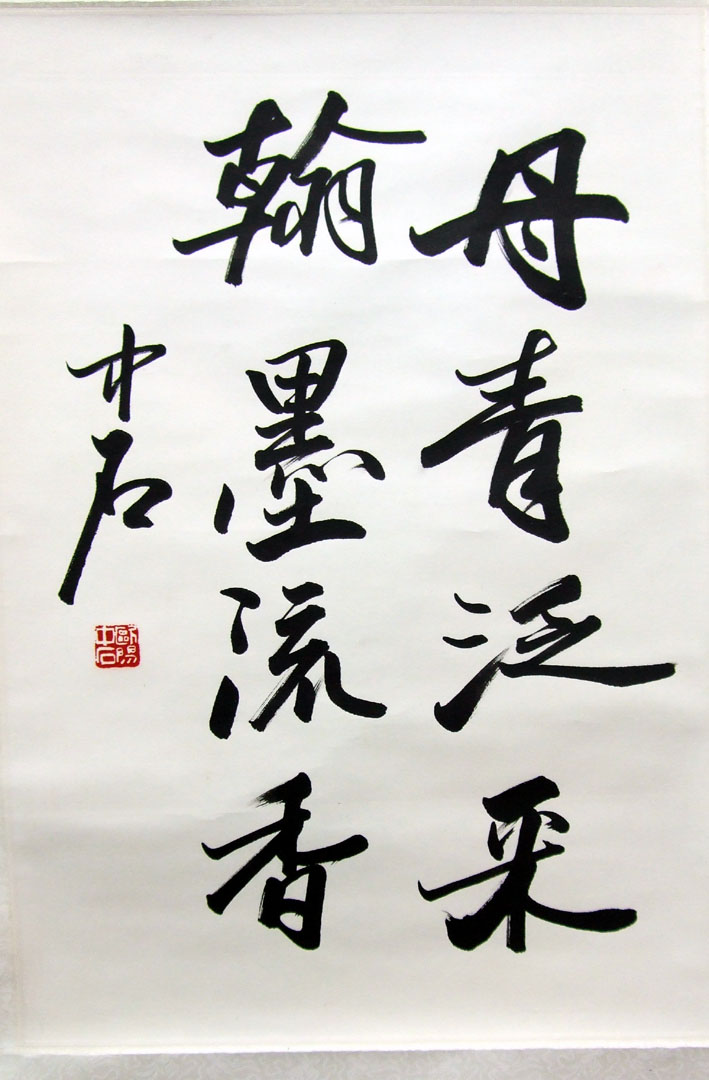 丹青泛采
翰墨流香
中石
歐陽中石